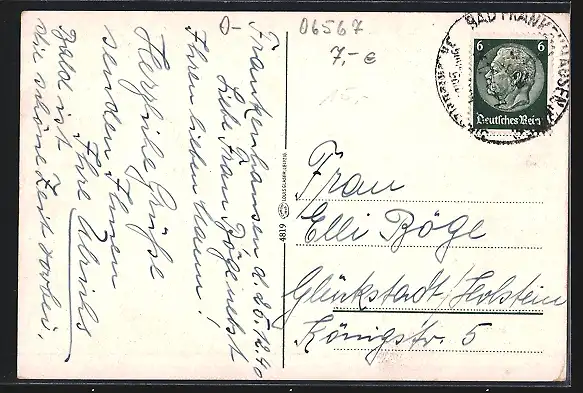 0-
06567
7,- €
15,-
BAD FRANKENHAUSEN
6 6
Deutsches Reich
Frankenhausen d. 26.12.40
Liebe Frau Böge nebst
Ihren lieben Mann!
Herzliche Grüße
senden Ihnen
Ihre Ulrichs
Bald ist
die schöne Zeit vorbei.
4819
LOUIS GLASER, LEIPZIG
Frau
Elli Böge
Glückstadt/Holstein
Königstr. 5